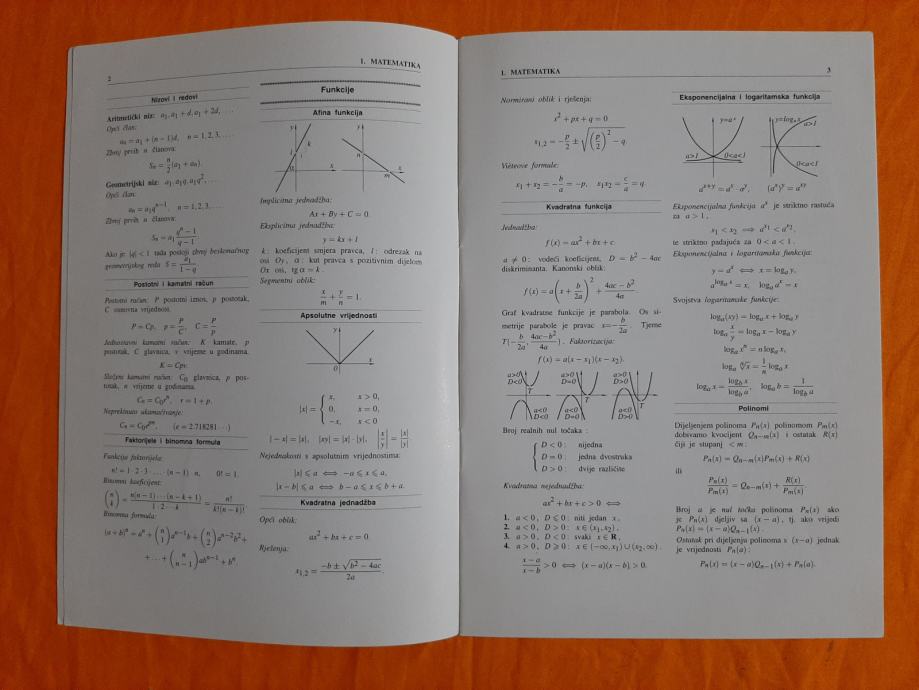 2
1. MATEMATIKA
Nizovi i redovi
Aritmetički niz: a₁, a₁ + d, a₁ + 2d, . . .
Opći član:
aₙ = a₁ + (n − 1)d, n = 1, 2, 3, . . .
Zbroj prvih n članova:
Sₙ = n/2 (a₁ + aₙ).
Geometrijski niz: a₁, a₁q, a₁q², . . .
Opći član:
aₙ = a₁qⁿ⁻¹, n = 1, 2, 3, . . .
Zbroj prvih n članova:
Sₙ = a₁ (qⁿ − 1)/(q − 1)
Ako je |q| < 1 tada postoji zbroj beskonačnog
geometrijskog reda S = a₁/(1 − q)
Postotni i kamatni račun
Postotni račun: P postotni iznos, p postotak,
C osnovna vrijednost.
P = Cp, p = P/C, C = P/p
Jednostavni kamatni račun: K kamate, p
postotak, C glavnica, v vrijeme u godinama.
K = Cpv.
Složeni kamatni račun: C₀ glavnica, p pos-
totak, n vrijeme u godinama.
Cₙ = C₀rⁿ, r = 1 + p.
Neprekinuto ukamaćivanje:
(e = 2.718281 · · ·)
Faktorijele i binomna formula
Funkcija faktorijela:
n! = 1 · 2 · 3 · . . . · (n − 1) · n, 0! = 1.
Binomni koeficijent:
(n k) = n(n − 1) · · · (n − k + 1)/(1 · 2 · · · k) = n!/(k!(n − k)!)
Binomna formula:
(a + b)ⁿ = aⁿ + (n 1) aⁿ⁻¹b + (n 2) aⁿ⁻²b² +
+ . . . + (n n − 1) abⁿ⁻¹ + bⁿ.
Funkcije
Afina funkcija
y y
l k n
α x m x
Implicitna jednadžba:
Ax + By + C = 0.
Eksplicitna jednadžba:
y = kx + l
k : koeficijent smjera pravca, l : odrezak na
osi Oy, α : kut pravca s pozitivnim dijelom
Ox osi, tg α = k .
Segmentni oblik:
x/m + y/n = 1.
Apsolutne vrijednosti
y
0 x
|x| = { x, x > 0,
0, x = 0,
−x, x < 0
| − x| = |x|, |xy| = |x| · |y|, |x/y| = |x|/|y|
Nejednakosti s apsolutnim vrijednostima:
|x| ⩽ a ⟺ −a ⩽ x ⩽ a,
|x − b| ⩽ a ⟺ b − a ⩽ x ⩽ b + a.
Kvadratna jednadžba
Opći oblik:
ax² + bx + c = 0
Rješenja:
x₁,₂ = (−b ± √(b² − 4ac))/2a.
1. MATEMATIKA
3
Normirani oblik i rješenja:
x² + px + q = 0
x₁,₂ = −p/2 ± √((p/2)² − q.
Vièteove formule:
x₁ + x₂ = −b/a = −p, x₁x₂ = c/a = q.
Kvadratna funkcija
Jednadžba:
f(x) = ax² + bx + c
a ≠ 0 : vodeći koeficijent, D = b² − 4ac
diskriminanta. Kanonski oblik:
f(x) = a(x + b/2a)² + (4ac − b²)/4a
Graf kvadratne funkcije je parabola. Os si-
metrije parabole je pravac x=−b/2a . Tjeme
T(−b/2a, (4ac−b²)/4a) . Faktorizacija:
f(x) = a(x − x₁)(x − x₂).
a>0 a>0 a>0
D<0 D=0 D>0
T T T
a<0 a<0 a<0
D<0 D=0 D>0
Broj realnih nul točaka :
{ D < 0 : nijedna
D = 0 : jedna dvostruka
D > 0 : dvije različite
Kvadratna nejednadžba:
ax² + bx + c > 0 ⟺
1. a < 0 , D ⩽ 0 : niti jedan x ,
2. a < 0 , D > 0 : x ∈ (x₁, x₂) ,
3. a > 0 , D < 0 : svaki x ∈ R ,
4. a > 0 , D ⩾ 0 : x ∈ (−∞, x₁) ∪ (x₂, ∞) .
(x − a)/(x − b) > 0 ⟺ (x − a)(x − b) > 0.
Eksponencijalna i logaritamska funkcija
y=aˣ y=logₐ x
a>1 0<a<1 a>1 0<a<1
aˣ⁺ʸ = aˣ · aʸ, (aˣ)ʸ = aˣʸ
Eksponencijalna funkcija aˣ je striktno rastuća
za a > 1 ,
x₁ < x₂ ⟹ aˣ¹ < aˣ²,
te striktno padajuća za 0 < a < 1 .
Eksponencijalna i logaritamska funkcija:
y = aˣ ⟺ x = logₐ y,
a^(logₐ x) = x, logₐ aˣ = x
Svojstva logaritamske funkcije:
logₐ(xy) = logₐ x + logₐ y
logₐ x/y = logₐ x − logₐ y
logₐ xⁿ = n logₐ x,
logₐ ⁿ√x = 1/n logₐ x
logₐ x = log_b x/log_b a, logₐ b = 1/log_b a
Polinomi
Dijeljenjem polinoma Pₙ(x) polinomom Pₘ(x)
dobivamo kvocijent Qₙ₋ₘ(x) i ostatak R(x)
čiji je stupanj < m :
Pₙ(x) = Qₙ₋ₘ(x)Pₘ(x) + R(x)
ili
Pₙ(x)/Pₘ(x) = Qₙ₋ₘ(x) + R(x)/Pₘ(x)
Broj a je nul točka polinoma Pₙ(x) ako
je Pₙ(x) djeljiv sa (x − a) , tj. ako vrijedi
Pₙ(x) = (x − a)Qₙ₋₁(x) .
Ostatak pri dijeljenju polinoma s (x−a) jednak
je vrijednosti Pₙ(a) :
Pₙ(x) = (x − a)Qₙ₋₁(x) + Pₙ(a).